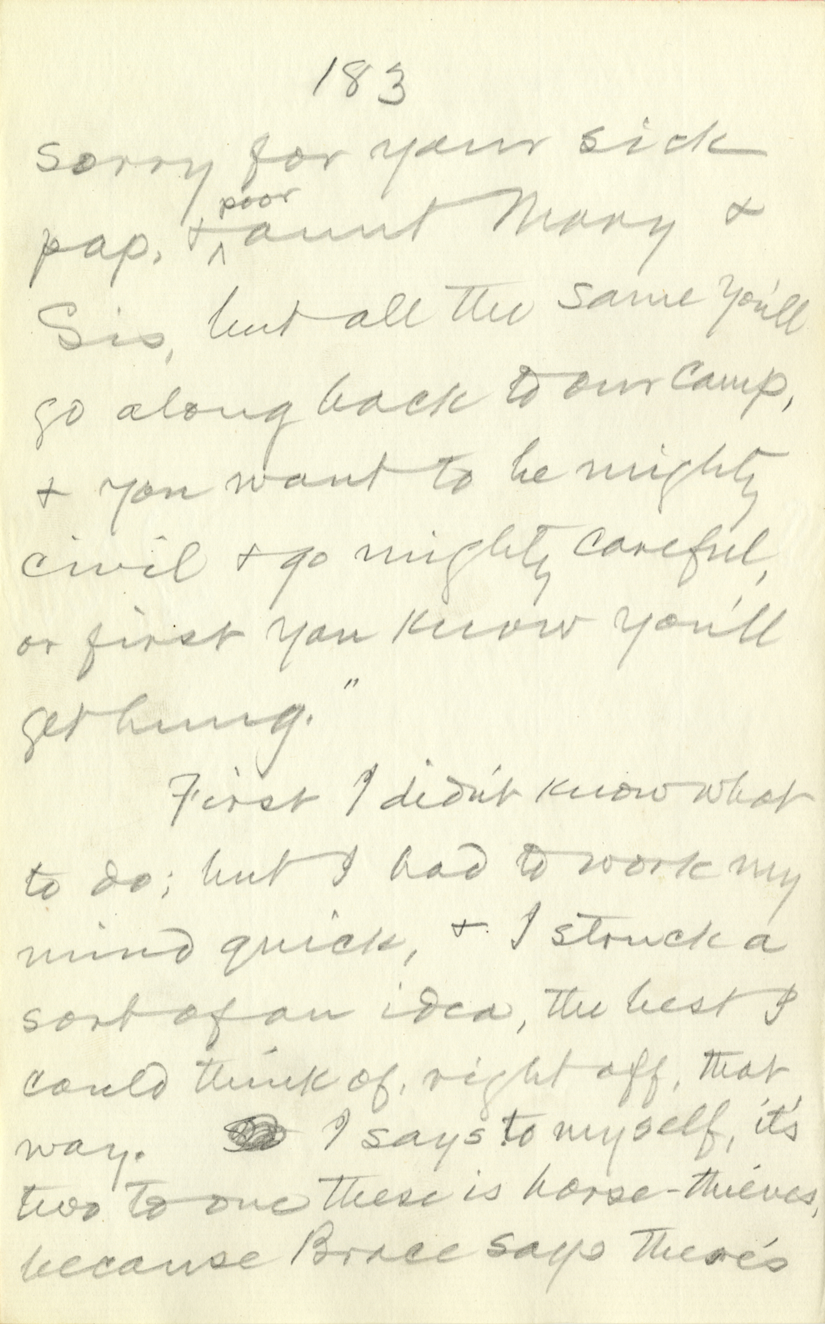 183
sorry for your sick
pap, + poor aunt Mary +
Sis, but all the same you'll
go along back to our camp,
+ you want to be mighty
civil + go mighty careful,
or first you know you'll
get hung."
First I didn't know what
to do; but I had to work my
mind quick, + I struck a
sort of an idea, the best I
could think of, right off, that
way. I says to myself, it's
two to one these is horse-thieves,
because Brace says there's